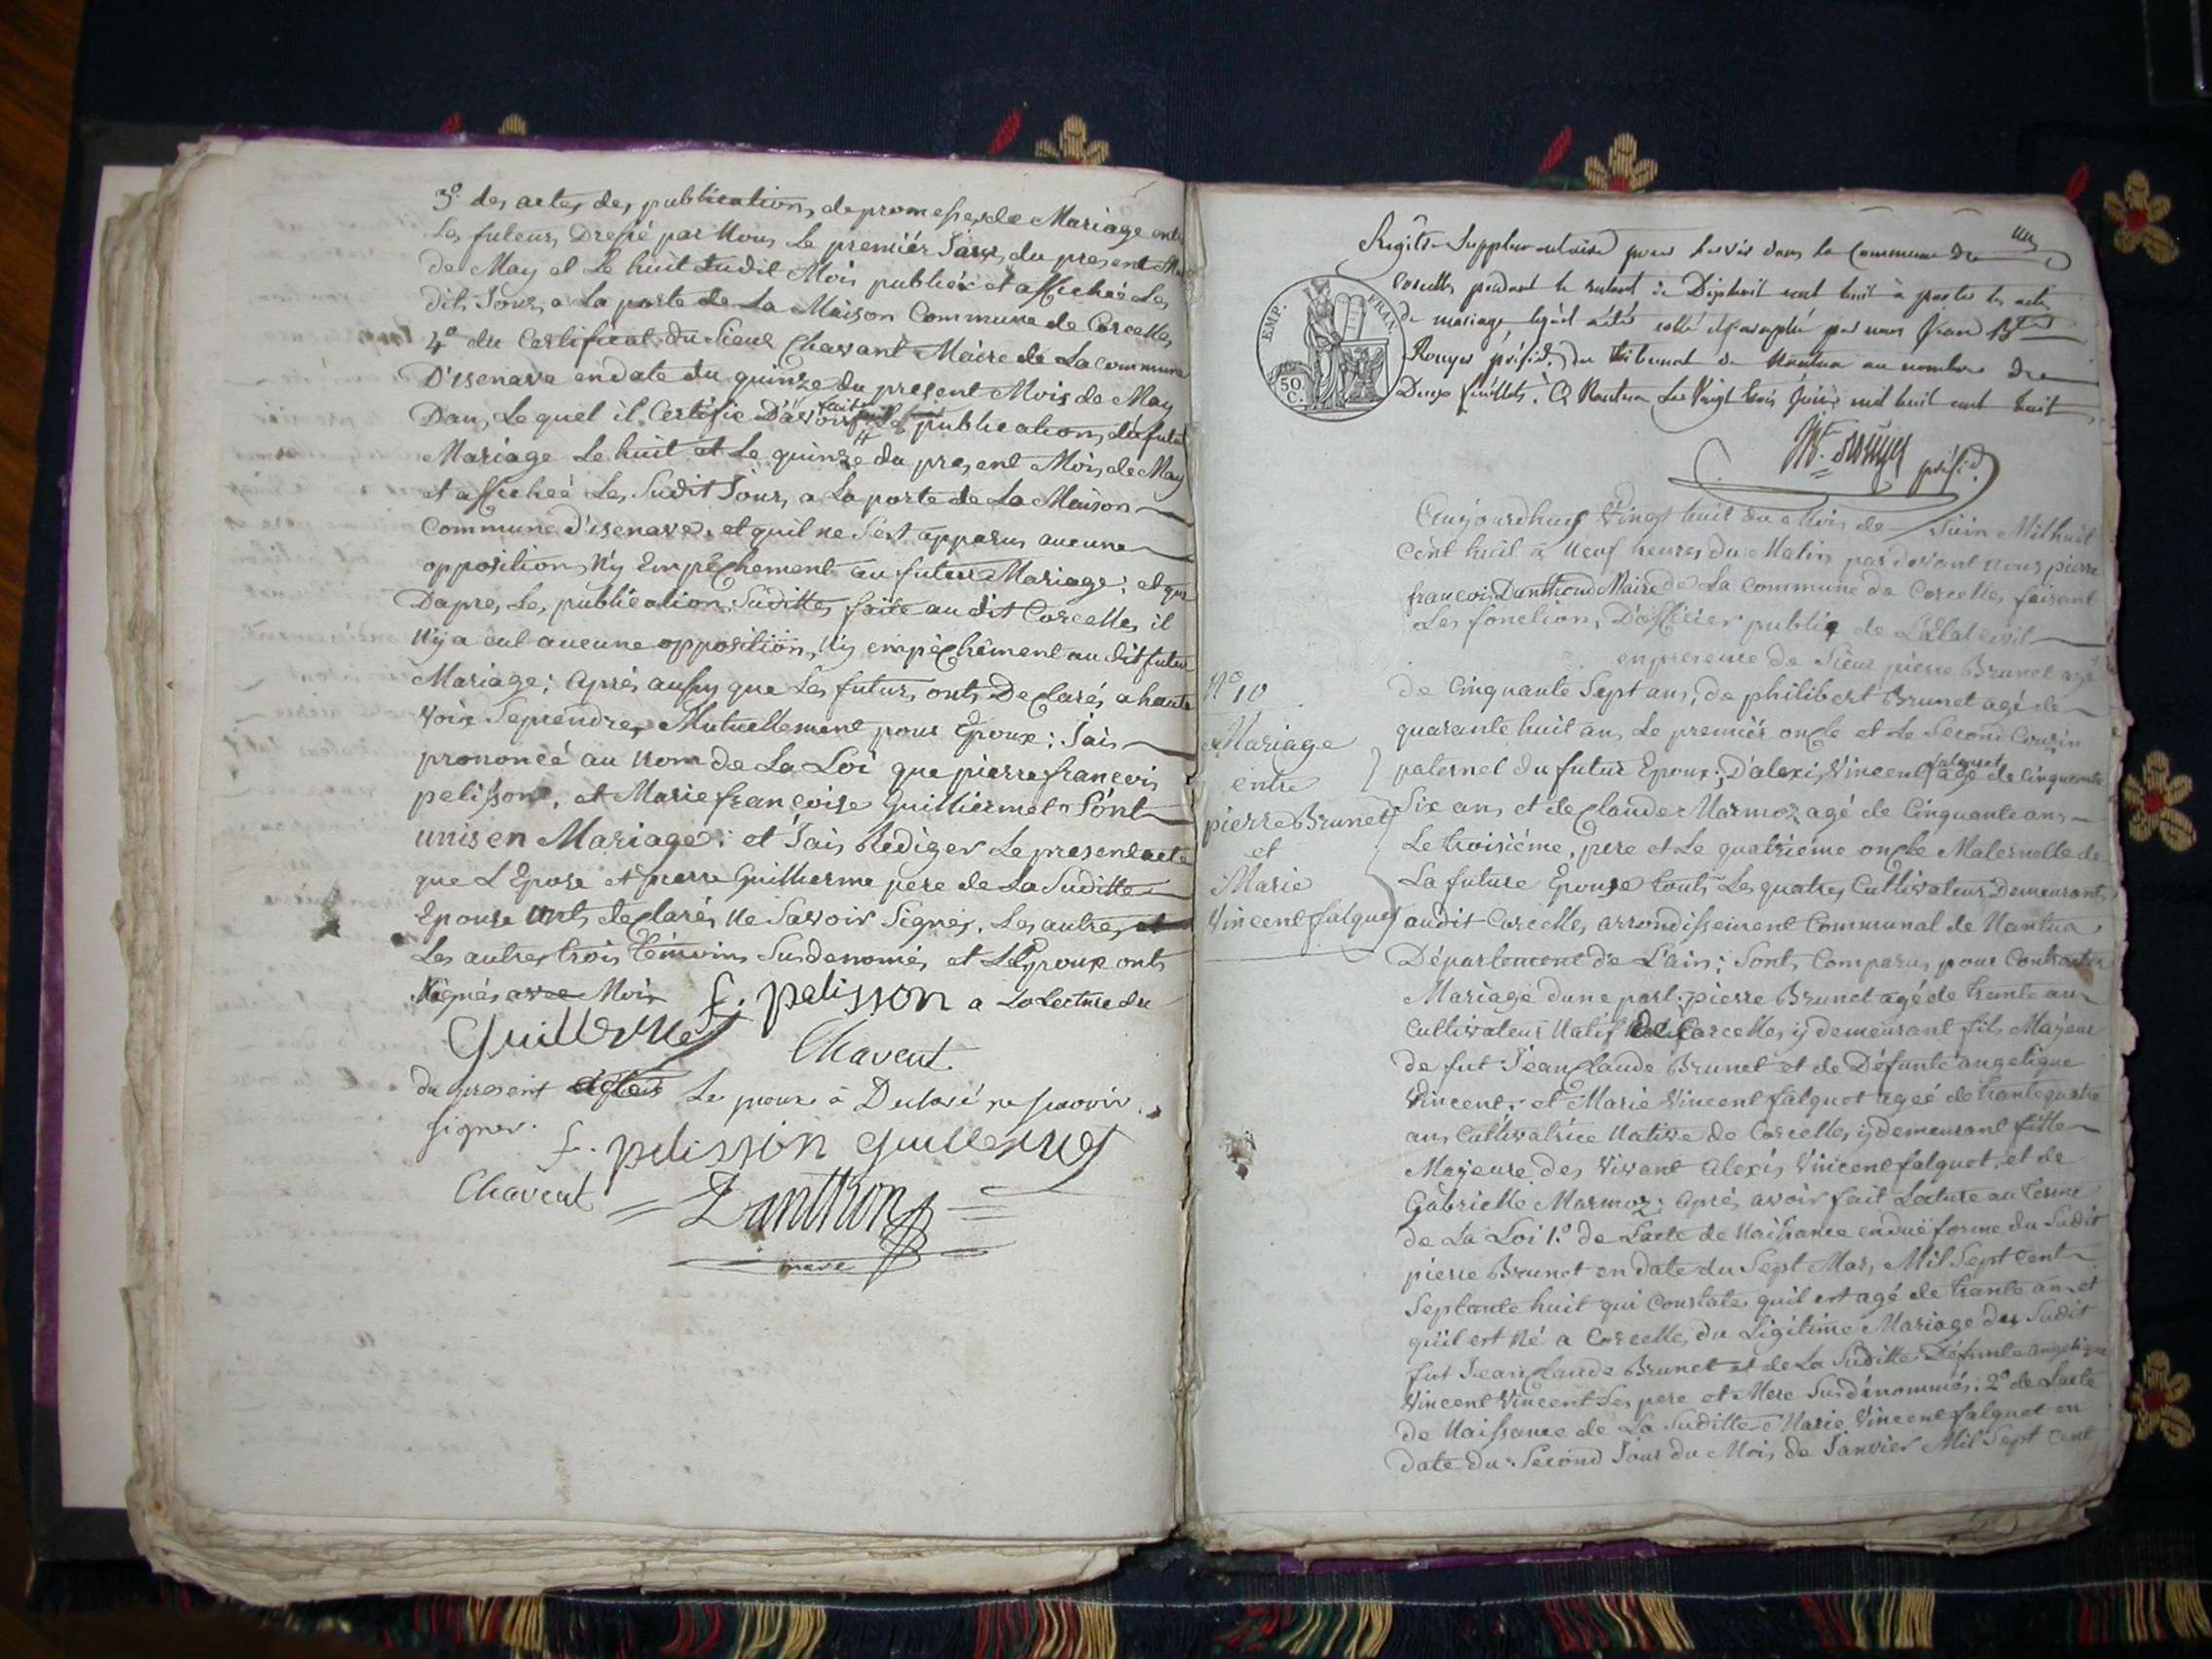 3º des actes des publications de promesses de Mariage entre
Les futeurs Dressé par Nous Le premiér Jours du present Mois
de May et Le huit dudit Mois publiéé et affichéé Les
dits Jours a La porte de La Maison Commune de Corcelles
4º du Certificat du Sieur Chavant Maire de La commune
D'isenave en date du quinze du present Mois de May
Dans Lequel il Certifie D'avoir fait Les publications du futur
Mariage Le huit et Le quinze du present Mois de May
et affichéé Les Sudit Jours a La porte de La Maison
Commune d'isenave. et quil ne S'est apparus aucune
opposition Ny Empêchement au futeur Mariage; et que
Dapres Les publication Suditte faite au dit Corcelles il
N'y a eut aucune opposition, Ny empêchêment au dit futur
Mariage; Aprés aussy que Les futurs onts Declarés a haute
voix Seprendre Mutuellement pour Epoux; J'ais
prononcéé au Nom de La Loi que pierre françois
pelisson, et Marie françoise Guilliermet Sónt
unis en Mariage: et J'ais Rediger Le present acte
que L'Epose et pierre Guillerme pere de La Suditte
Epouse onts declarés Ne Savoir Signer. Les autres et
Les autres trois témoins Susdenomés et L'Epoux onts
Signés avec Mois f. pelisson a La Lecture du
Guillermet Chavent
du present Le poux à Declaré ne scavoir
signer.
f. pelisson Guillermet
Chavent Danthon
maire
un
Registre Supplementaire pour Servir dans la Commune de
Corcelles pendant le restant de Dixhuit cent huit à porter les actes
de mariage, lequel a été cotté et paraphé par nous Jean Bte
Rouyer présidt du tribunal de Nantua au nombre de
Deux feuillets. A Nantua Le Vingt trois Juin mil huit cent huit
EMP. FRAN.
50 C.
Bte. Rouyer présidt
Aujourdhuy Vingt huit du Mois de Juin Mil huit
cent huit a Neuf heures du Matin par devant nous pierre
françois Danthond Maire de La Commune de Corcelles faisant
Les fonctions D'officier public de L'Etat civil
en presence de Sieur pierre Brunet agé
de Cinquante Sept ans, de philibert Brunet agé de
quarante huit ans Le premiér oncle et Le Second Cousin
paternel du futur Epoux; D'alexis Vincent falquet agé de Cinquante
Six ans et de Claude Marmoz agé de Cinquante ans
Le troisiéme, pere et Le quatriéme oncle Maternelle de
La future Epouse touts Les quatres Cultivateurs Demeurants
audit Corcelles, arrondissement Communal de Nantua
Département de L'ain; Sonts Comparus pour Contracter
Mariage dune part. pierre Brunet agé de trente ans
Cultivateur Natif de Corcelles y demeurant fils Majeur
de fut Jean Claude Brunet et de Défunte angelique
Vincent; et Marie Vincent falquet ageé de trante quatre
ans Cultivatrice Native de Corcelles y demeurant fille
Majeure des Vivant alexis Vincent falquet, et de
Gabrielle Marmoz; aprés avoir fait Lecture au terme
de La Loi 1º de L'acte de Naissance en duë forme du Sudit
pierre Brunet en date du Sept Mars Mil Sept Cent
Septante huit qui Constate quil est agé de trante ans et
qu'il est Né a Corcelles du Légitime Mariage des Sudit
fut Jean Claude Brunet et de La Suditte Défunte angelique
Vincent Vincent Ses pere et Mere Susdénommés; 2º de L'acte
de Naissance de La Suditte Marie Vincent falquet en
date du Second Jour du Mois de Janvier Mil Sept Cent
Nº 10
Mariage
entre
pierre Brunet
et
Marie
Vincent falquet